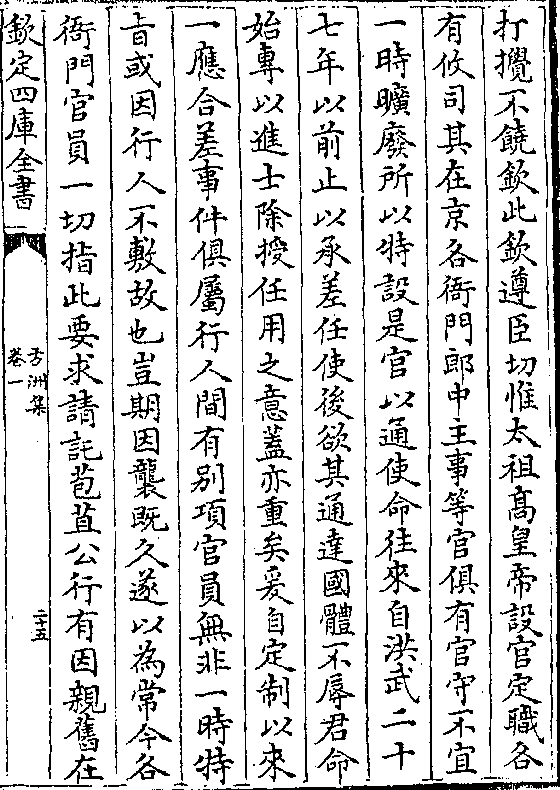 打攪不饒欽此欽遵臣切惟太祖髙皇帝設官定職各
有攸司其在京各衙門郎中主事等官俱有官守不宜
一時曠廢所以特設是官以通使命往來自洪武二十
七年以前止以承差任使後欲其通達國體不辱君命
始專以進士除授任用之意蓋亦重矣爰自定制以來
一應合差事件俱屬行人間有别項官員無非一時特
㫖或因行人不敷故也豈期因襲既久遂以為常今各
衙門官員一切指此要求請託苞苴公行有因親舊在
欽定四庫全書
卷一
方洲集
二十五